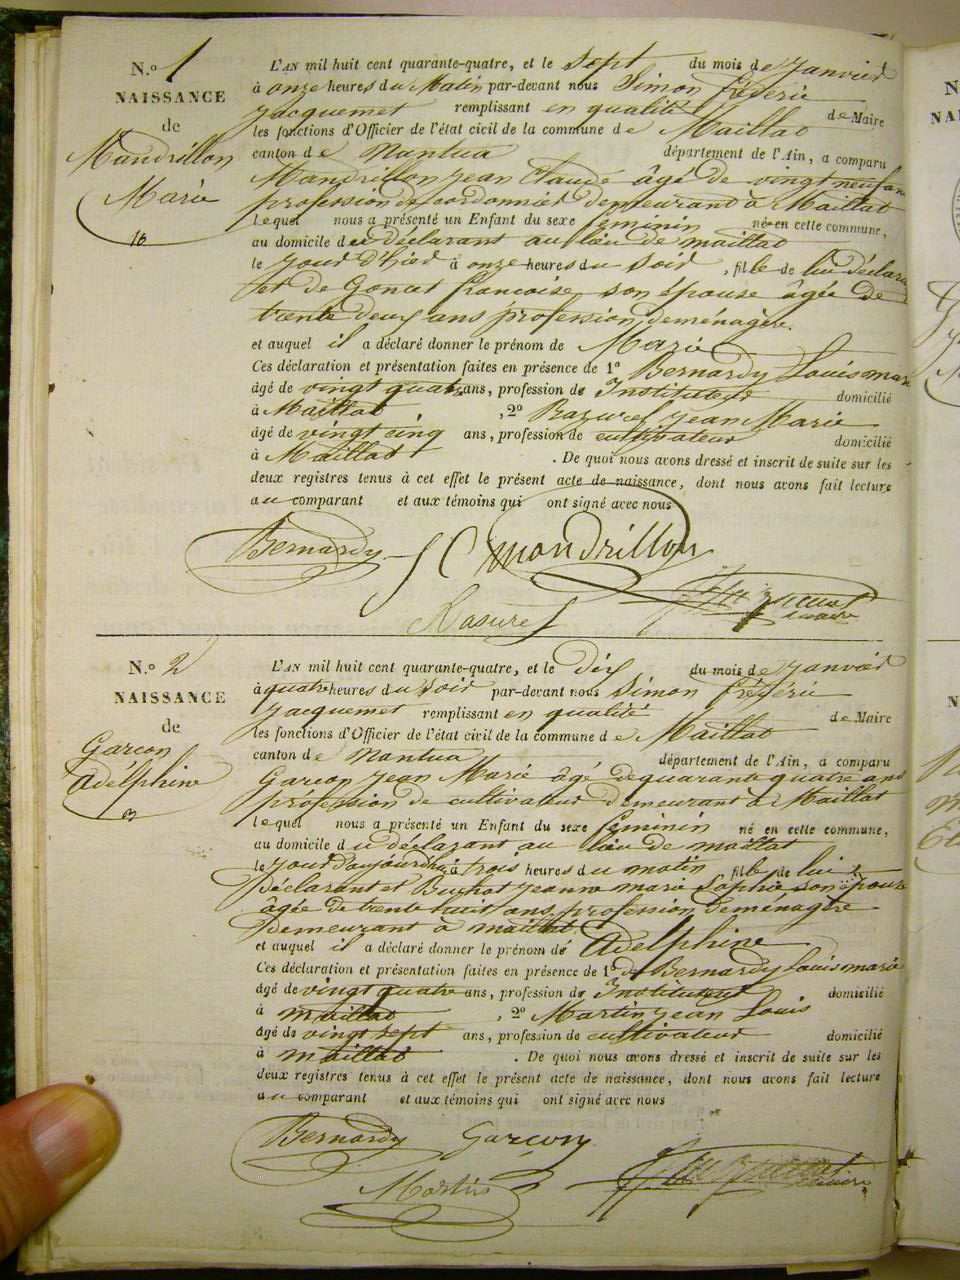 N.o 1
NAISSANCE
de
Mandrillon
Marie
L'AN mil huit cent quarante-quatre, et le sept du mois de janvier
à onze heures du Matin par-devant nous Simon fréderic
jacquemet remplissant en qualité de Maire
les fonctions d'Officier de l'état civil de la commune de Maillat
canton de Nantua département de l'Ain, a comparu
Mandrillon jean Claude âgé de vingt neuf ans
profession de cordonnier demeurant à Maillat
lequel nous a présenté un Enfant du sexe féminin né en cette commune,
au domicile du déclarant au lieu de maillat
le jour d'hier à onze heures du soir, fille de lui déclarant
et de Goncet françoise son épouse âgée de
trente deux ans profession de ménagère.
et auquel il a déclaré donner le prénom de Marie
Ces déclaration et présentation faites en présence de 1° Bernardy Louis marie
âgé de vingt quatre ans, profession de Instituteur domicilié
à Maillat, 2° Rasurel jean Marie
âgé de vingt cinq ans, profession de cultivateur domicilié
à Maillat. De quoi nous avons dressé et inscrit de suite sur les
deux registres tenus à cet effet le présent acte de naissance, dont nous avons fait lecture
au comparant et aux témoins qui ont signé avec nous
Bernardy J C mandrillon
Rasurel
maire
N.o 2
NAISSANCE
de
Garçon
adélphine
L'AN mil huit cent quarante-quatre, et le dix du mois de janvier
à quatre heures du soir par-devant nous Simon fréderic
jacquemet remplissant en qualité de Maire
les fonctions d'Officier de l'état civil de la commune de Maillat
canton de Nantua département de l'Ain, a comparu
Garçon jean Marie âgé de quarante quatre ans
profession de cultivateur demeurant à Maillat
lequel nous a présenté un Enfant du sexe féminin né en cette commune,
au domicile du déclarant au lieu de maillat
le jour d'aujourd'hui à trois heures du matin, fille de lui
déclarant et Buchot jeanne marie Sophie son épouse
âgée de trente huit ans profession de ménagère
demeurant à maillat
et auquel il a déclaré donner le prénom de Adélphine
Ces déclaration et présentation faites en présence de 1° de Bernardy Louis marie
âgé de vingt quatre ans, profession de Instituteur domicilié
à maillat, 2° Martin jean Louis
âgé de vingt sept ans, profession de cultivateur domicilié
à maillat. De quoi nous avons dressé et inscrit de suite sur les
deux registres tenus à cet effet le présent acte de naissance, dont nous avons fait lecture
au comparant et aux témoins qui ont signé avec nous
Bernardy Garçon
Martin